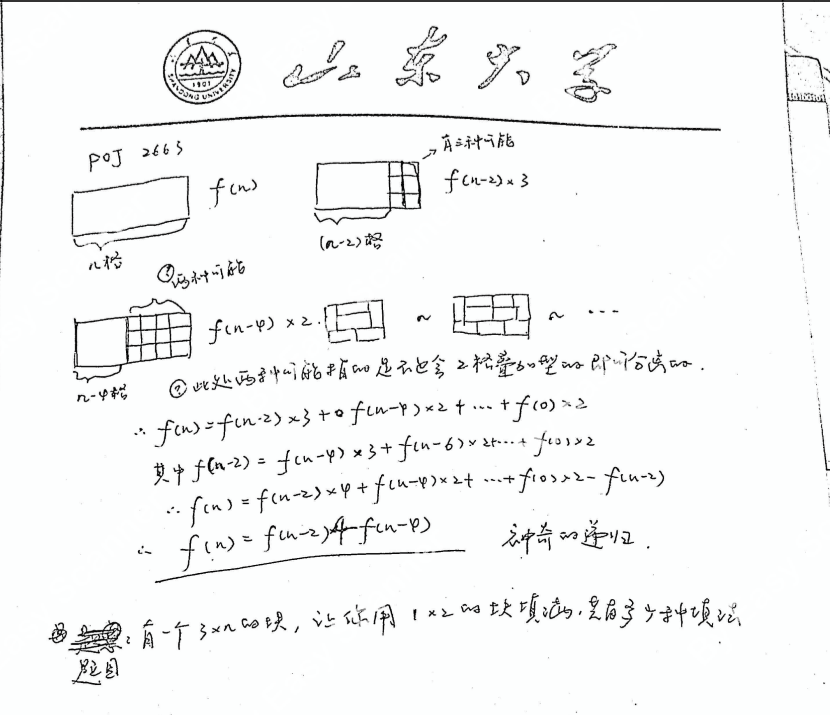 山东大学
SHANDONG UNIVERSITY
1901
POJ 2663
f(n)
n格
有三种可能
f(n-2)×3
(n-2)格
①两种可能
f(n-4)×2.
~
~
...
n-4格
②此处两种可能指的是不包含2格叠加型的即可分离的.
∴ f(n)=f(n-2)×3+f(n-4)×2+...+f(0)×2
其中 f(n-2) = f(n-4)×3+f(n-6)×2+...+f(0)×2
∴ f(n) = f(n-2)×4+f(n-4)×2+...+f(0)×2-f(n-2)
∴ f(n) = f(n-2)×4-f(n-4)
神奇的递归.
题目:有一个3×n的块,让你用1×2的块填满,共有多少种填法